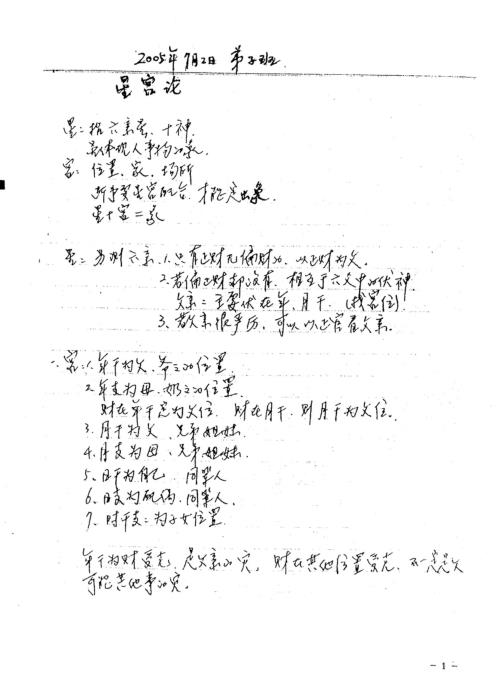 2005年7月2日 弟子班
星宫论
星:指六亲星、十神
具体现人事物之象.
宫:位置、家、场所
断事要星宫配合,才能定出象.
星+宫=象
星:另测六亲.1.只有正财无偏财的,以正财为父.
2.若偏正财都没有,相当于六爻中的伏神
父亲:主要伏在年、月干.(找宫位)
3、若父亲很严厉,可以以正官看父亲.
宫:1.年干为父、爷之的位置
2.年支为母、奶之的位置
财在年干定为父位.财在月干,则月干为父位.
3.月干为父、兄弟姐妹.
4.月支为母、兄弟姐妹.
5、日干为自己、同辈人
6、日支为配偶.同辈人.
7、时干支:为子女位置
年干为财受克,是父亲的灾,财在其他位置受克,不一定是父
可能其他事的灾.
- 1 -